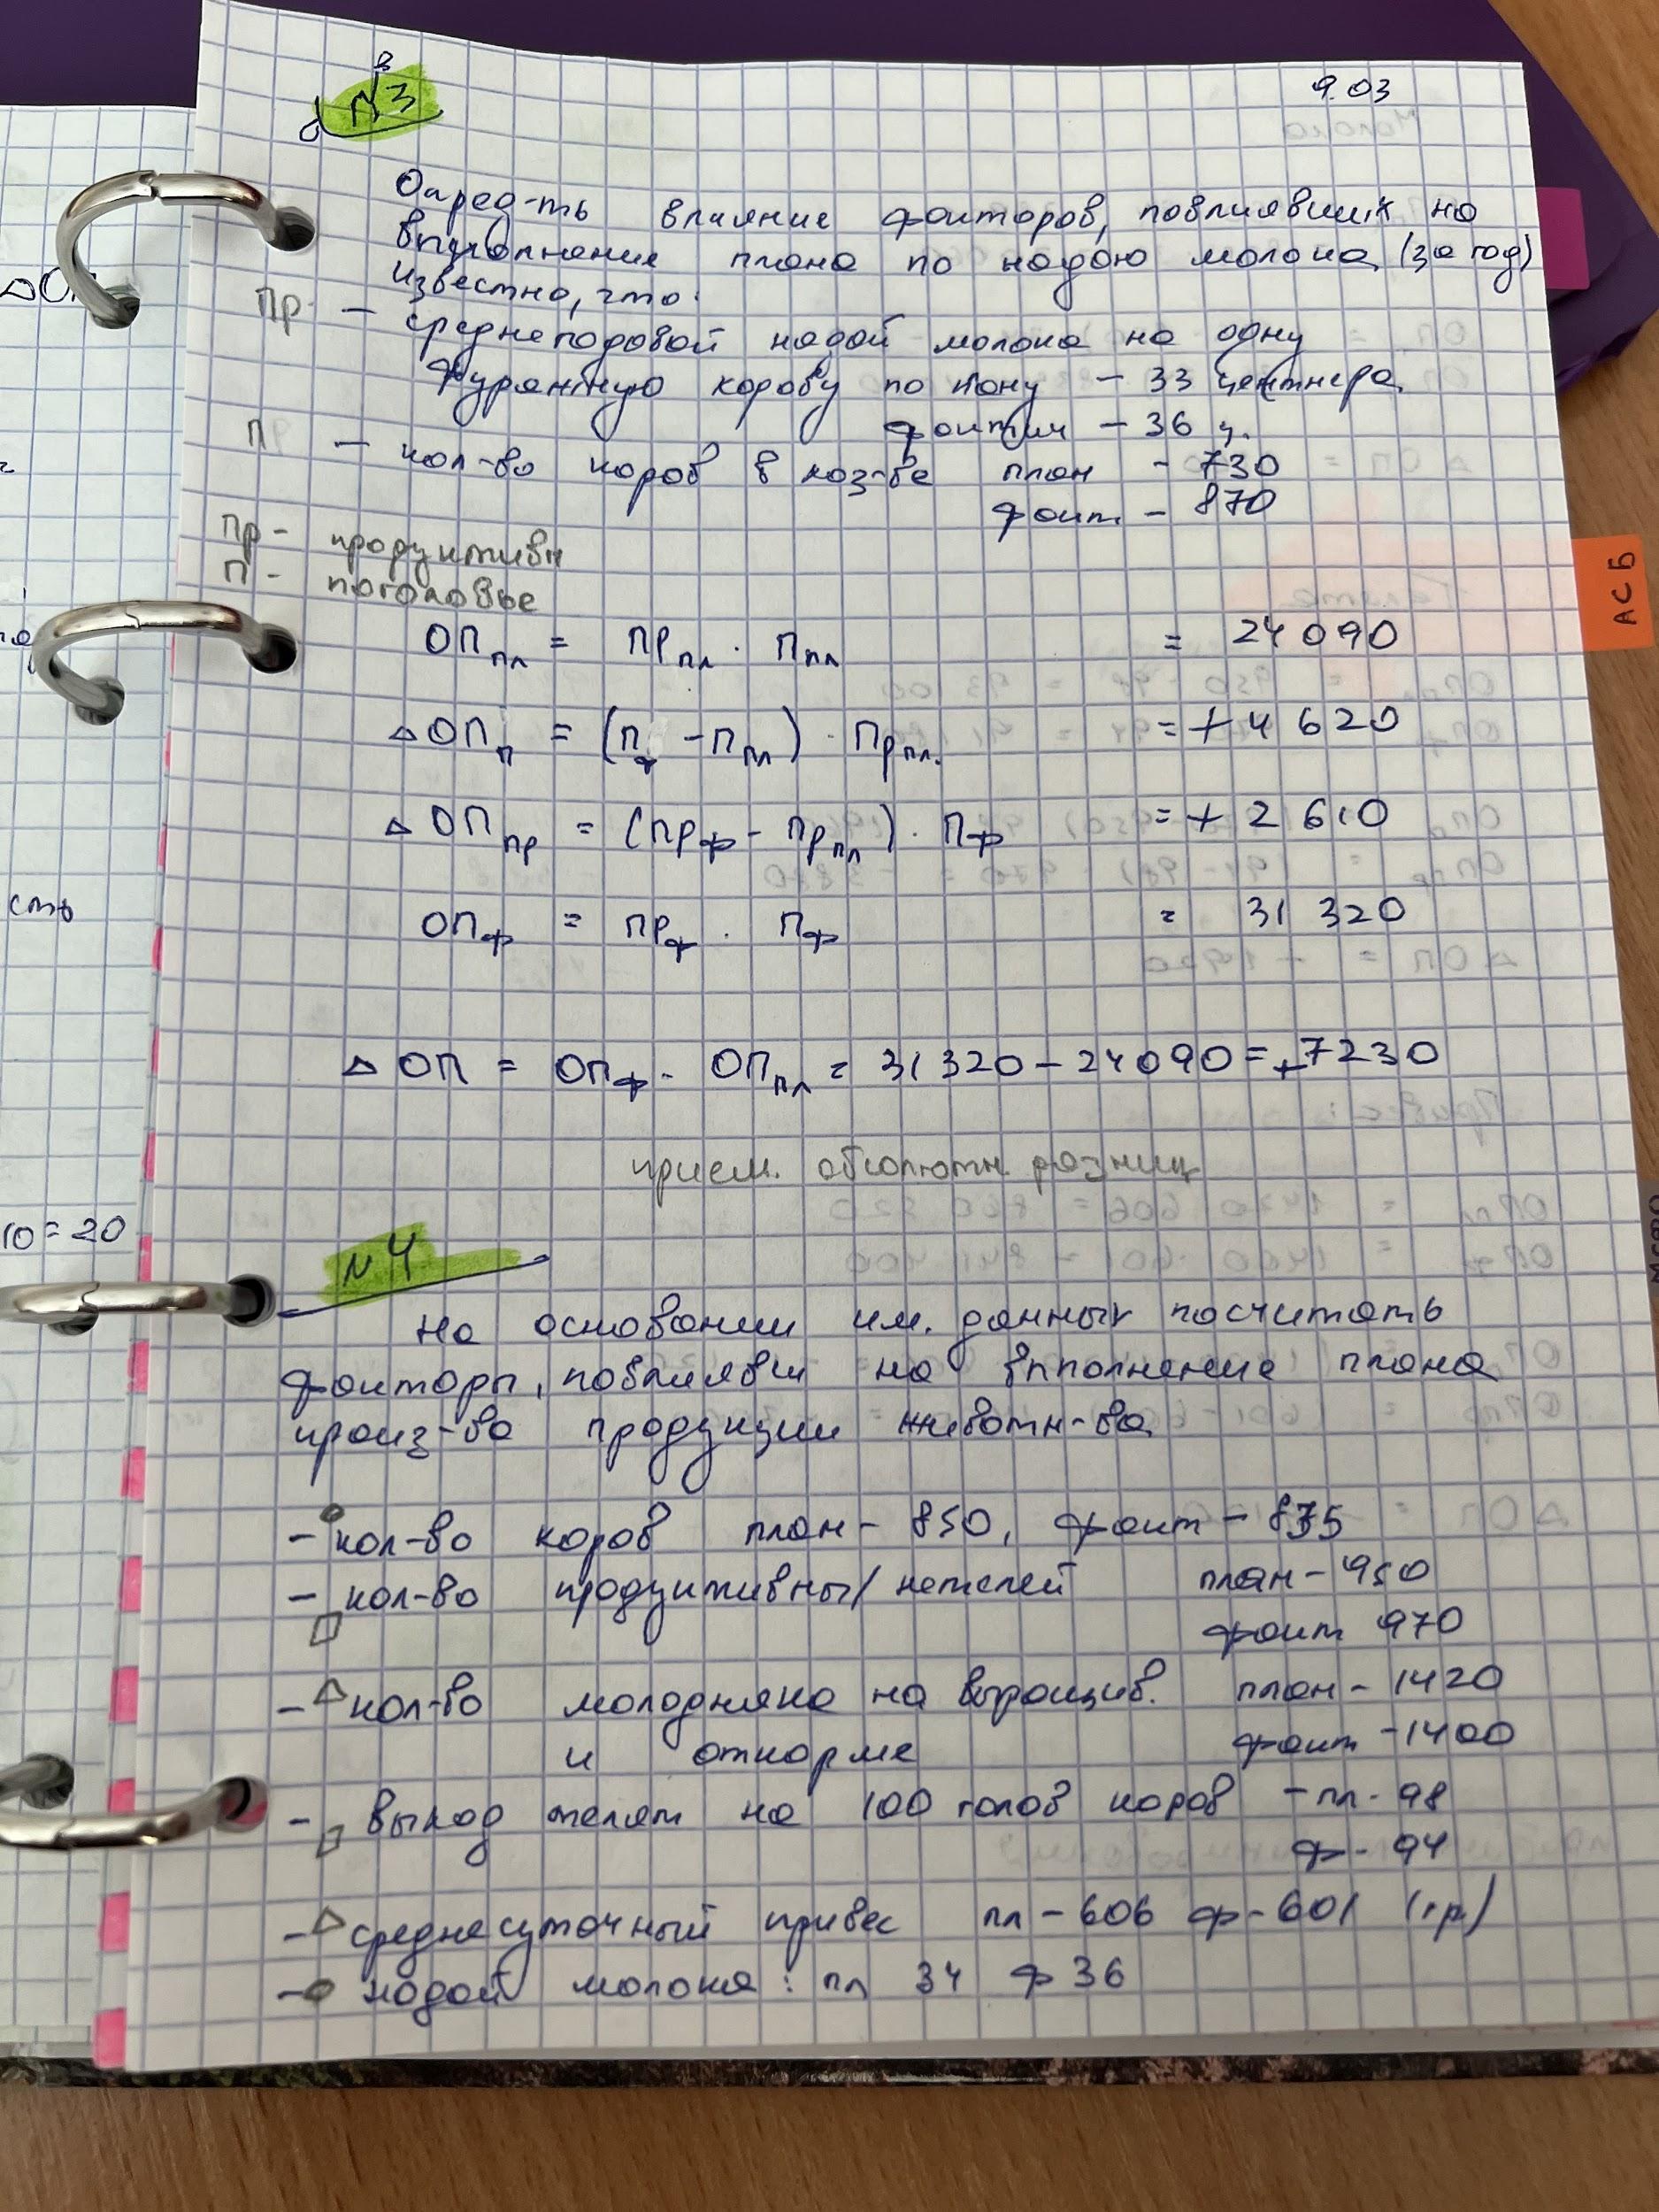 9.03
в
№3
Опред-ть влияние факторов, повлиявших на
выполнение плана по надою молока (за год)
известно, что:
Пр - среднегодовой надой молока на одну
фуражную корову по плану - 33 центнера
фактич - 36 ц.
П - кол-во коров в хоз-ве план - 730
факт. - 870
Пр - продуктивн
П - поголовье
ОПпл = Прпл · Ппл = 24 090
△ОПп = (Пф - Ппл) · Прпл. = + 4 620
△ОПпр = (Прф - Прпл) · Пф = + 2 610
ОПф = Прф · Пф = 31 320
△ОП = ОПф - ОПпл = 31 320 - 24 090 = +7230
прием. абсолютн. разниц
№4
На основании им. данных посчитать
факторы, повлиявш на выполнение плана
произ-ва продукции животн-ва
- кол-во коров план - 850, факт - 835
- кол-во продуктивных нетелей план - 950
факт 970
- △ кол-во молодняка на выращив. план - 1420
и откорме факт - 1400
- □ выход телят на 100 голов коров - пл - 98
ф - 94
- △ среднесуточный привес пл - 606 ф - 601 (гр)
- надой молока: пл 34 ф 36
АСБ
△ОП
сть
10 = 20